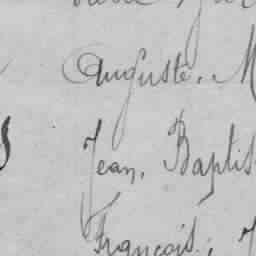 Auguste. M
Jean, Baptis
François,